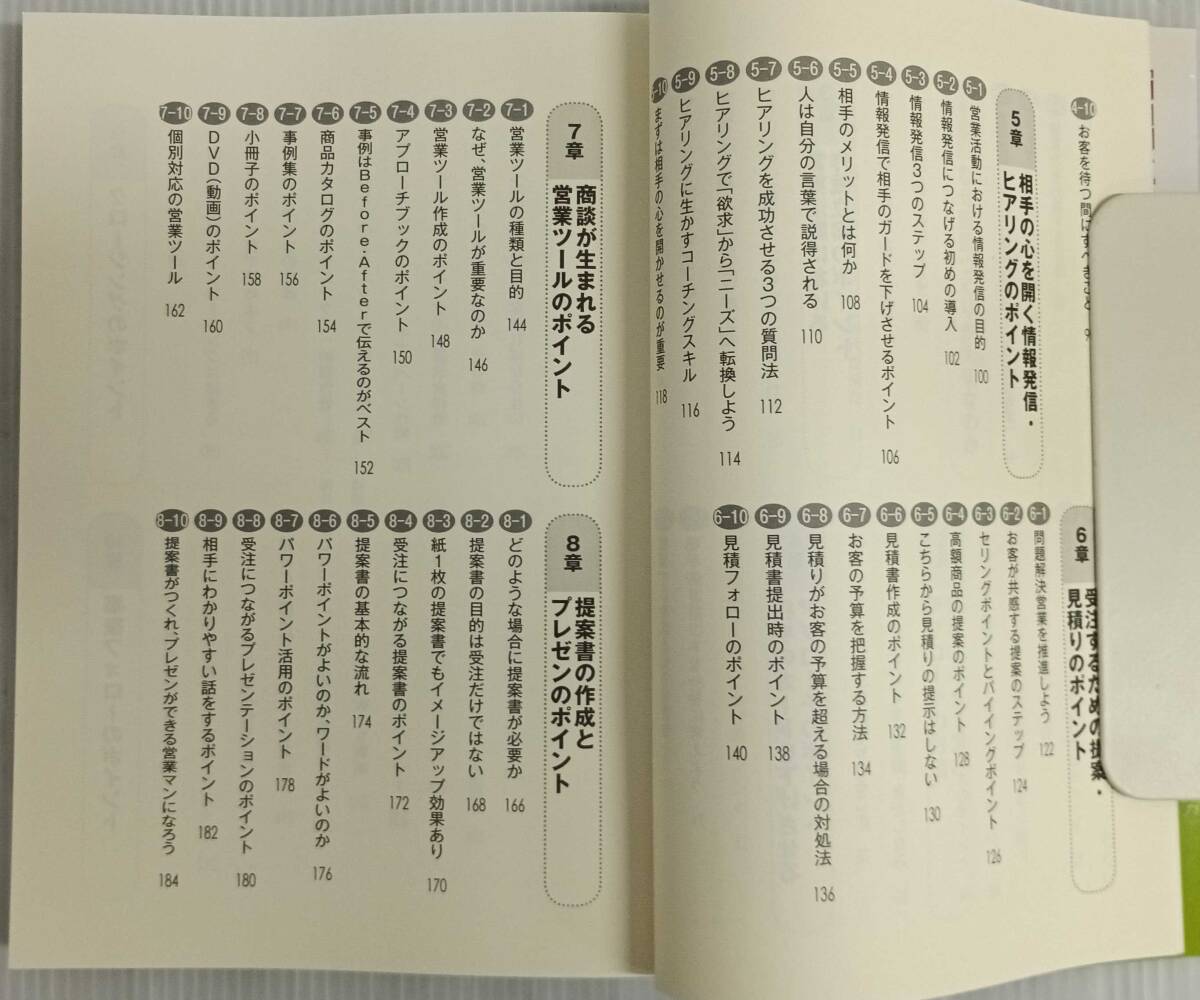 4-10 お客を待つ間にすべきこと
5章 相手の心を開く情報発信・
ヒアリングのポイント
5-1 営業活動における情報発信の目的 100
5-2 情報発信につなげる初めの導入 102
5-3 情報発信3つのステップ 104
5-4 情報発信で相手のガードを下げさせるポイント 106
5-5 相手のメリットとは何か 108
5-6 人は自分の言葉で説得される 110
5-7 ヒアリングを成功させる3つの質問法 112
5-8 ヒアリングで「欲求」から「ニーズ」へ転換しよう 114
5-9 ヒアリングに生かすコーチングスキル 116
5-10 まずは相手の心を開かせるのが重要 118
6章 受注するための提案・
見積りのポイント
6-1 問題解決営業を推進しよう 122
6-2 お客が共感する提案のステップ 124
6-3 セリングポイントとバイイングポイント 126
6-4 高額商品の提案のポイント 128
6-5 こちらから見積りの提示はしない 130
6-6 見積書作成のポイント 132
6-7 お客の予算を把握する方法 134
6-8 見積りがお客の予算を超える場合の対処法 136
6-9 見積書提出時のポイント 138
6-10 見積フォローのポイント 140
7章 商談が生まれる
営業ツールのポイント
7-1 営業ツールの種類と目的 144
7-2 なぜ、営業ツールが重要なのか 146
7-3 営業ツール作成のポイント 148
7-4 アプローチブックのポイント 150
7-5 事例はBefore・Afterで伝えるのがベスト 152
7-6 商品カタログのポイント 154
7-7 事例集のポイント 156
7-8 小冊子のポイント 158
7-9 DVD(動画)のポイント 160
7-10 個別対応の営業ツール 162
8章 提案書の作成と
プレゼンのポイント
8-1 どのような場合に提案書が必要か 166
8-2 提案書の目的は受注だけではない 168
8-3 紙1枚の提案書でもイメージアップ効果あり 170
8-4 受注につながる提案書のポイント 172
8-5 提案書の基本的な流れ 174
8-6 パワーポイントがよいのか、ワードがよいのか 176
8-7 パワーポイント活用のポイント 178
8-8 受注につながるプレゼンテーションのポイント 180
8-9 相手にわかりやすい話をするポイント 182
8-10 提案書がつくれ、プレゼンができる営業マンになろう 184